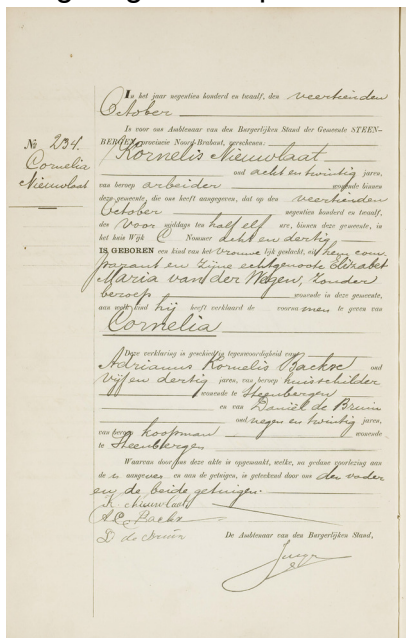 In het jaar negentien honderd en twaalf, den veertienden
October
is voor ons Ambtenaar van den Burgerlijken Stand der Gemeente STEEN-
BERGEN, provincie Noord-Brabant, verschenen:
Kornelis Nieuwlaat
oud acht en twintig jaren,
van beroep arbeider wonende binnen
deze gemeente, die ons heeft aangegeven, dat op den veertienden
October negentien honderd en twaalf,
des voor middags ten half elf ure, binnen deze gemeente, in
het huis Wijk C Nommer acht en dertig
IS GEBOREN een kind van het vrouwelijk geslacht, uit hem com-
parant en zijne echtgenoote Elizabet
Maria van der Wegen, zonder
beroep wonende in deze gemeente,
aan welk kind hij heeft verklaard de voornamen te geven van
Cornelia
Deze verklaring is geschied in tegenwoordigheid van
Adrianus Kornelis Backx oud
vijf en dertig jaren, van beroep huisschilder
wonende te Steenbergen
en van Daniël de Bruin
oud negen en twintig jaren,
van beroep koopman wonende
te Steenbergen
Waarvan door ons deze akte is opgemaakt, welke, na gedane voorlezing aan
de n aangever en aan de getuigen, is geteekend door ons den vader
en de beide getuigen.
K Nieuwlaat
A.C. Backx
D de Bruin
De Ambtenaar van den Burgerlijken Stand,
No 234.
Cornelia
Nieuwlaat